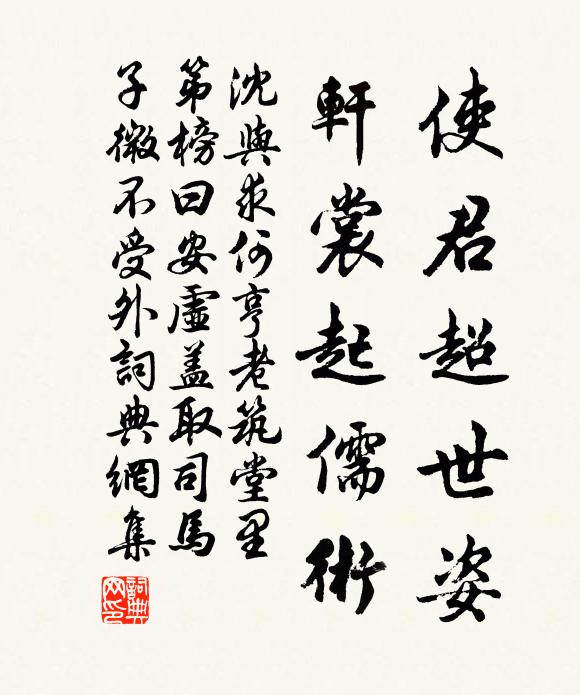 使君超世姿
軒裳起儒術
沈與求何亨老筑堂里
第榜曰安虛盖取司馬
子微不受外詞典網集
詞典網印